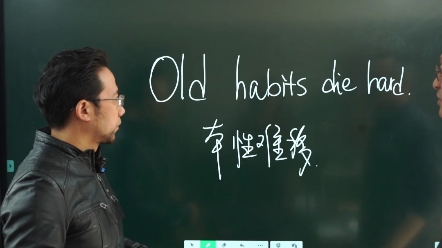 Old habits die hard.
本性难移.